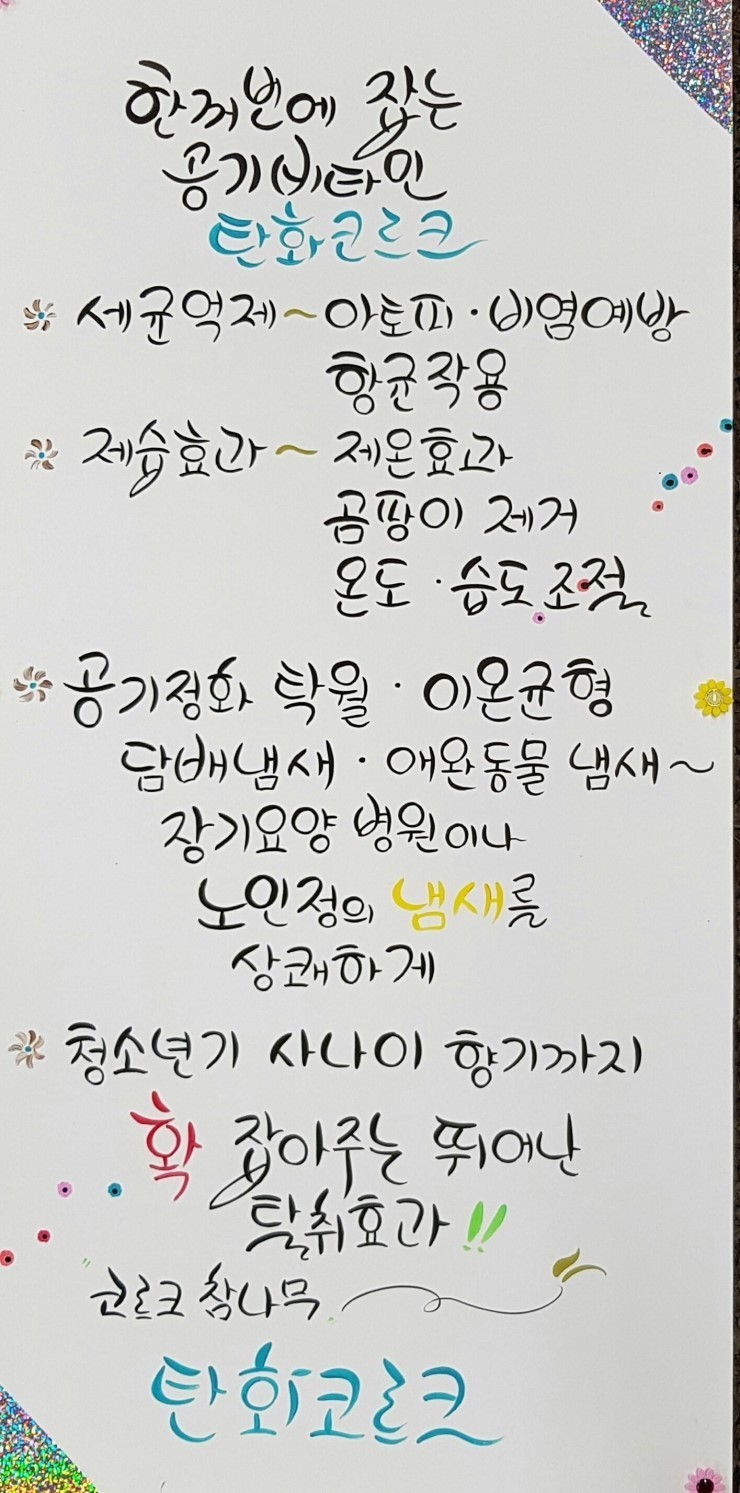 한꺼번에 잡는
공기비타민
탄화코르크
세균억제~아토피·비염예방
항균작용
제습효과~제온효과
곰팡이 제거
온도·습도조절
공기정화 탁월·이온균형
담배냄새·애완동물 냄새~
장기요양 병원이나
노인정의 냄새를
상쾌하게
청소년기 사나이 향기까지
확 잡아주는 뛰어난
탈취효과!!
"코르크 참나무"
탄화코르크